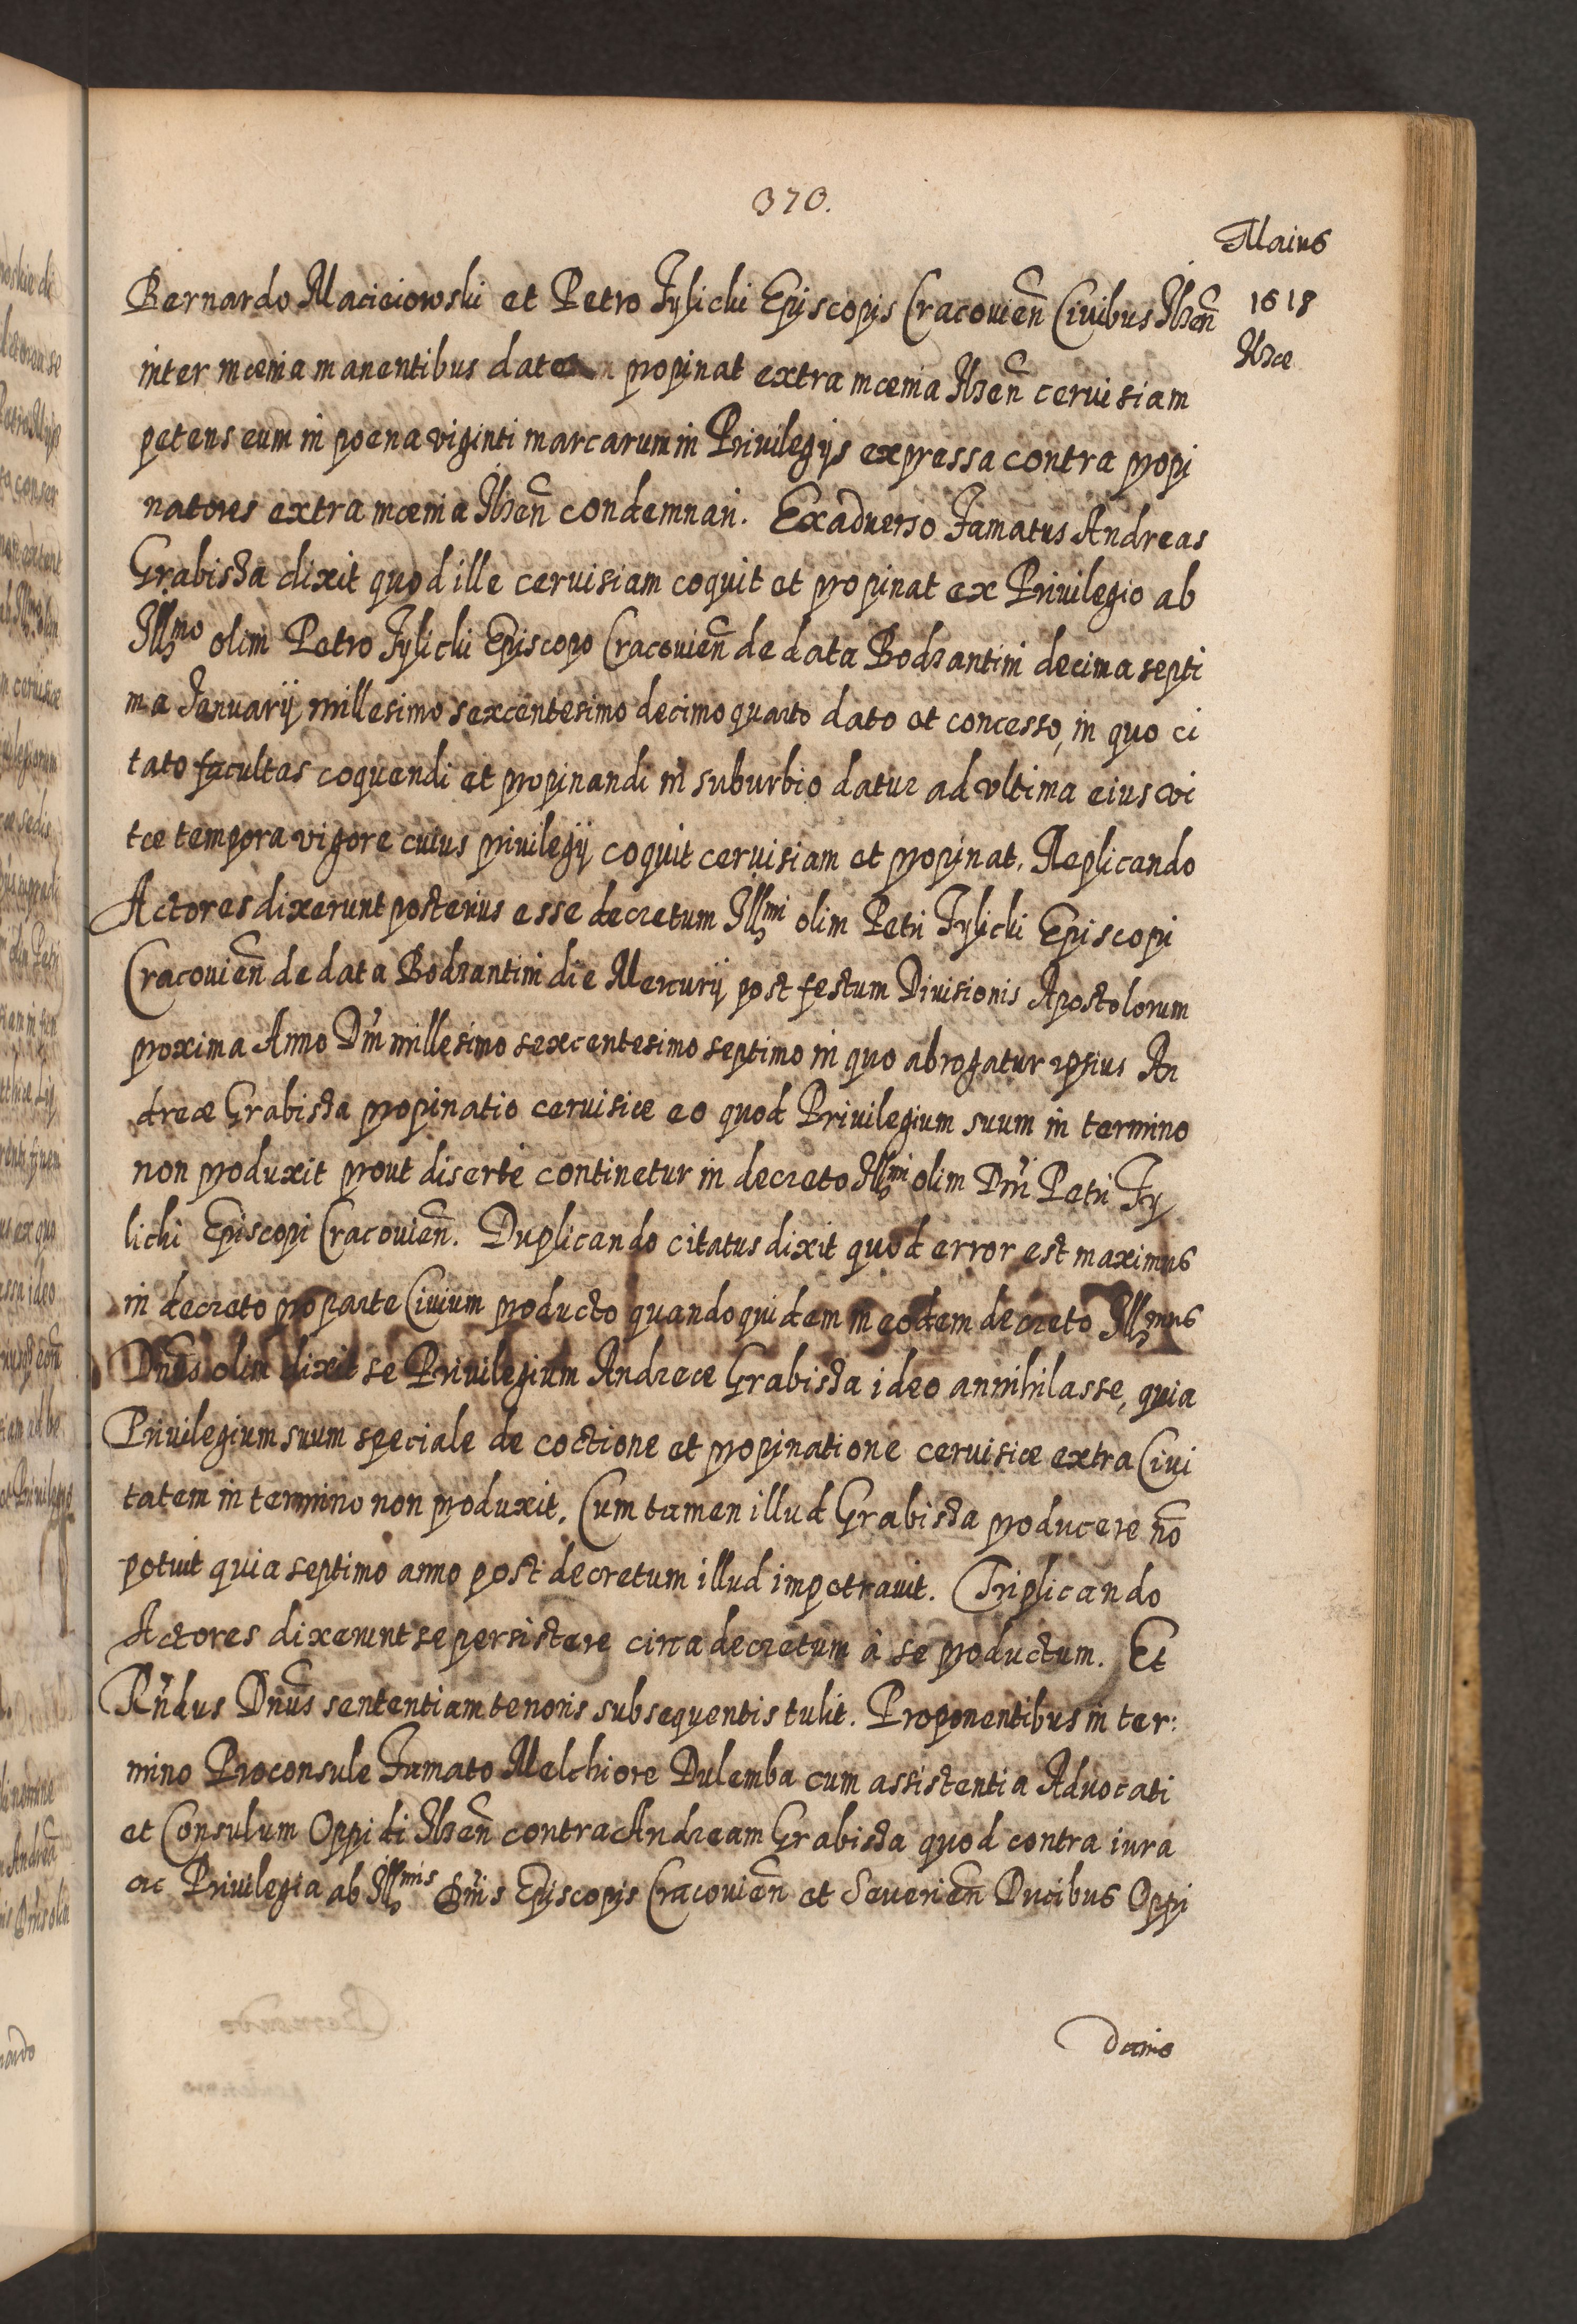 370.
Maius
1618
Ilzæ
Bernardo Macieiowski et Petro Tylicki Episcopis Cracovieñ Civibus Ilzeñ
inter mœnia manentibus data propinat extra mœnia Ilzeñ cervisiam
petens eum in poena viginti marcarum in Privilegijs expressa contra propi
natores extra mœnia Ilzeñ condemnari. Exadverso Famatus Andreas
Grabista dixit quod ille cervisiam coquit et propinat ex Privilegio ab
Illmo olim Petro Tylicki Episcopo Cracovieñ de data Bodzantini decima septi
ma Januarij millesimo sexcentesimo decimo quarto dato et concesso, in quo ci
tato facultas coquendi et propinandi in suburbio datur ad vltima eius vi
tæ tempora vigore cuius privilegij coquit cervisiam et propinat. Replicando
Actores dixerunt posterius esse decretum Illmi olim Petri Tylicki Episcopi
Cracovieñ de data Bodzantini die Mercurij post festum Divisionis Apostolorum
proxima Anno Dni millesimo sexcentesimo septimo in quo abrogatur ipsius An
dreæ Grabista propinatio cervisiæ eo quod Privilegium suum in termino
non produxit prout diserte continetur in decreto Illmi olim Dni Petri Ty
lichi Episcopi Cracovieñ. Duplicando citatus dixit quod error est maximus
in decreto pro parte Civium producto quandoquidem in eodem decreto Illmus
Dnus olim dixit se Privilegium Andreæ Grabista ideo annihilasse, quia
Privilegium suum speciale de coctione et propinatione cervisiæ extra Civi
tatem in termino non produxit. Cum tamen illud Grabista producere nõ
potuit quia septimo anno post decretum illud impetravit. Triplicando
Actores dixerunt se persistere circa decretum à se productum. Et
Rndus Dnus sententiam tenoris subsequentis tulit. Proponentibus in ter:
mino Proconsule Famato Melchiore Dulemba cum assistentia Advocati
et Consulum Oppidi Ilzeñ contra Andream Grabista quod contra iura
ac Privilegia ab Illmis Dnis Episcopis Cracovieñ et Severieñ Ducibus Oppi